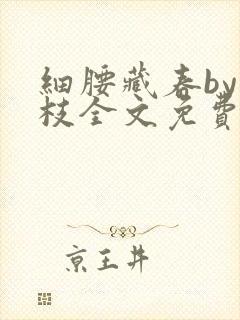 細腰藏春by
枝全文免費
京王井